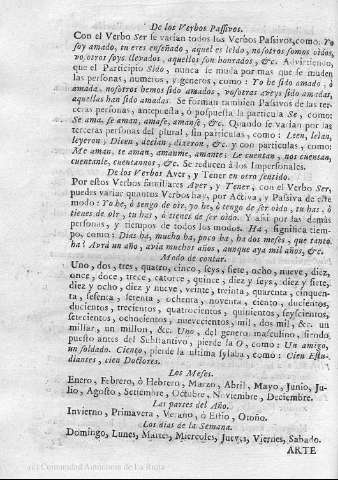 De los Verbos Passivos.
Con el Verbo Ser se varían todos los Verbos Passivos, como: Yo
soy amado, tu eres enseñado, aquel es leìdo, nosotros somos oìdos,
vosotros soys llevados, aquellos son honrados, &c. Advirtiendo,
que el Participio Sido, nunca se muda por mas que se muden
las personas, numeros, y generos, como: Yo he sido amado, ò
amada, nosotros hemos sido amados, vosotras aveys sido amadas,
aquellas han sido amadas. Se forman tambien Passivos de las ter-
ceras personas, antepuesta, ò pospuesta la particula Se, como:
Se ama, se aman, amase, amanse, &c. Quando se varían por las
terceras personas del plural, sin particulas, como: Leen, leìan,
leyeron; Dicen, decìan, dixeron, &c. y con particulas, como:
Me aman, te aman, amanme, amante: Le cuentan, nos cuentan,
cuentanle, cuentannos, &c. Se reducen à los Impersonales.
De los Verbos Aver, y Tener en otro sentido.
Por estos Verbos similiares Aver, y Tener, con el Verbo Ser,
puedes variar quantos Verbos hay, por Activa, y Passiva de este
modo: Yo he, ò tengo de oìr, yo he, ò tengo de ser oìdo, tu has, ò
tienes de oìr, tu has, ò tienes de ser oìdo. Y assi por las demàs
personas, y tiempos de todos los modos. Ha, significa tiem-
po, como: Dias ha, mucho ha, poco ha, ha dos meses, que tanto
ha! Avrà un año, avia muchos años, aunque aya mil años, &c.
Modo de contar.
Uno, dos, tres, quatro, cinco, seys, siete, ocho, nueve, diez,
once, doce, trece, catorce, quince, diez y seys, diez y siete,
diez y ocho, diez y nueve, veinte, treinta, quarenta, cinquen-
ta, sesenta, setenta, ochenta, noventa, ciento, ducientos,
ducientos, trecientos, quatrocientos, quinientos, seyscientos,
setecientos, ochocientos, nuevecientos, mil, dos mil, &c. un
millar, un millon, &c. Uno, del genero masculino, siendo
puesto antes del Substantivo, pierde la O, como: Un amigo,
un soldado. Ciento, pierde la ultima sylaba, como: Cien Estu-
diantes, cien Doctores.
Los Meses.
Enero, Febrero, ò Hebrero, Marzo, Abril, Mayo, Junio, Ju-
lio, Agosto, Setiembre, Octubre, Noviembre, Deciembre.
Las partes del Año.
Invierno, Primavera, Verano, ò Estio, Otoño.
Los dias de la Semana.
Domingo, Lunes, Martes, Miercoles, Jueves, Viernes, Sabado.
ARTE
(c) Comunidad Autónoma de La Rioja